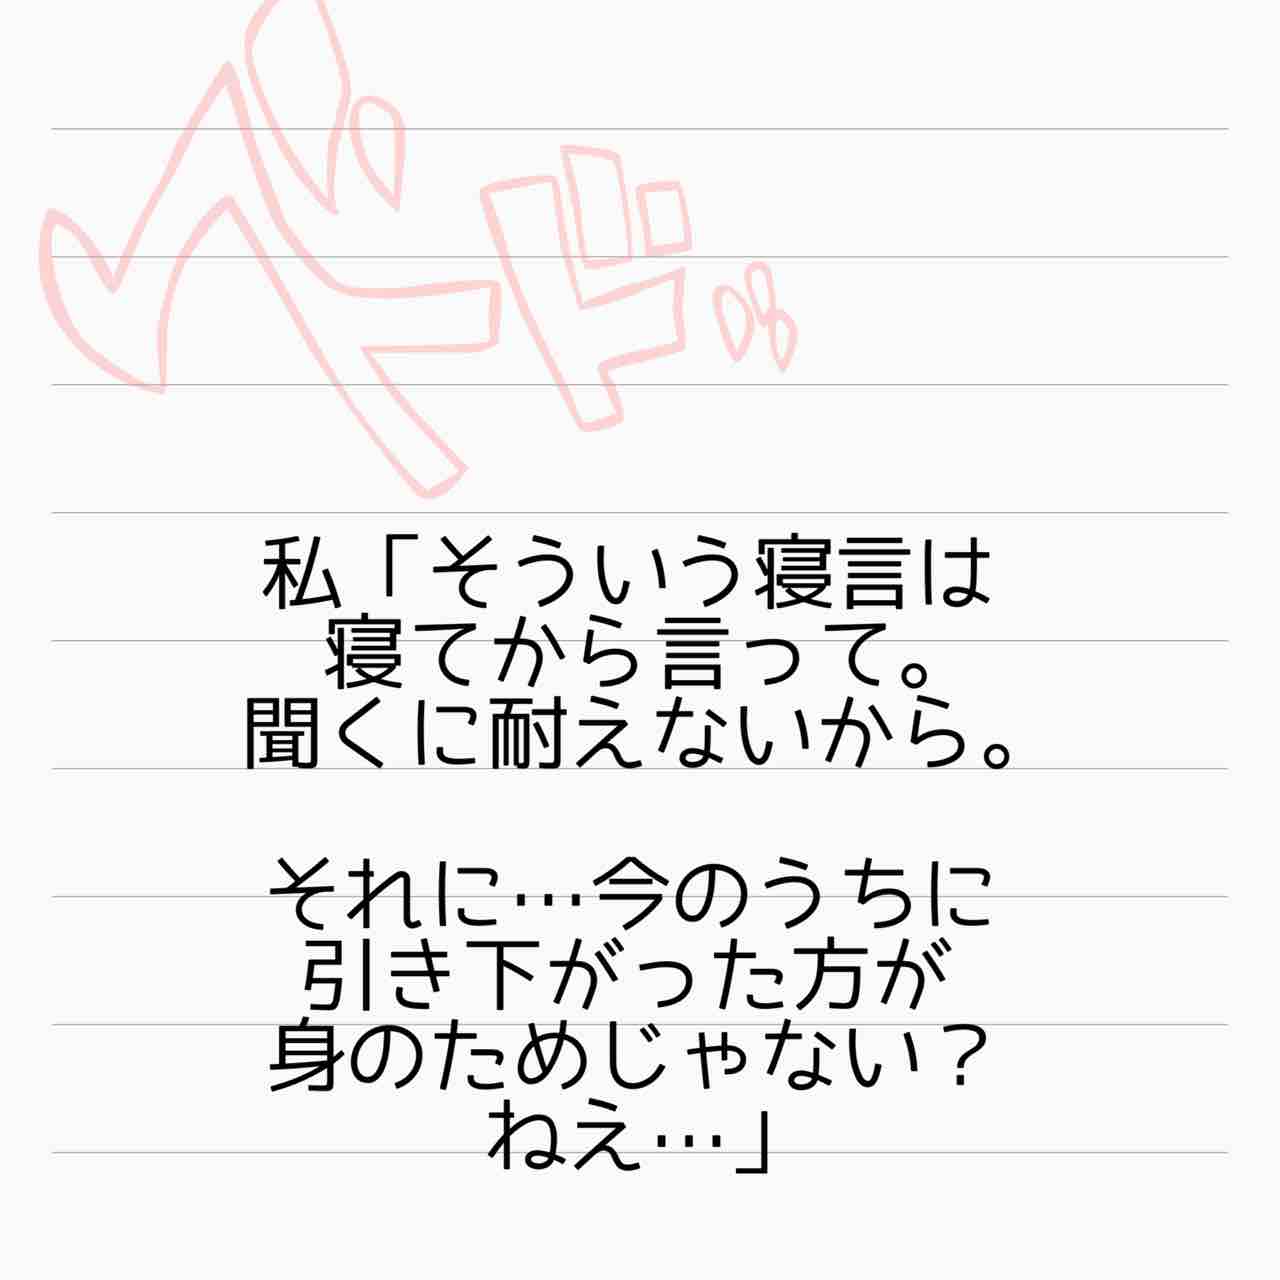 ドド
私「そういう寝言は
寝てから言って。
聞くに耐えないから。
それに…今のうちに
引き下がった方が
身のためじゃない？
ねえ…」